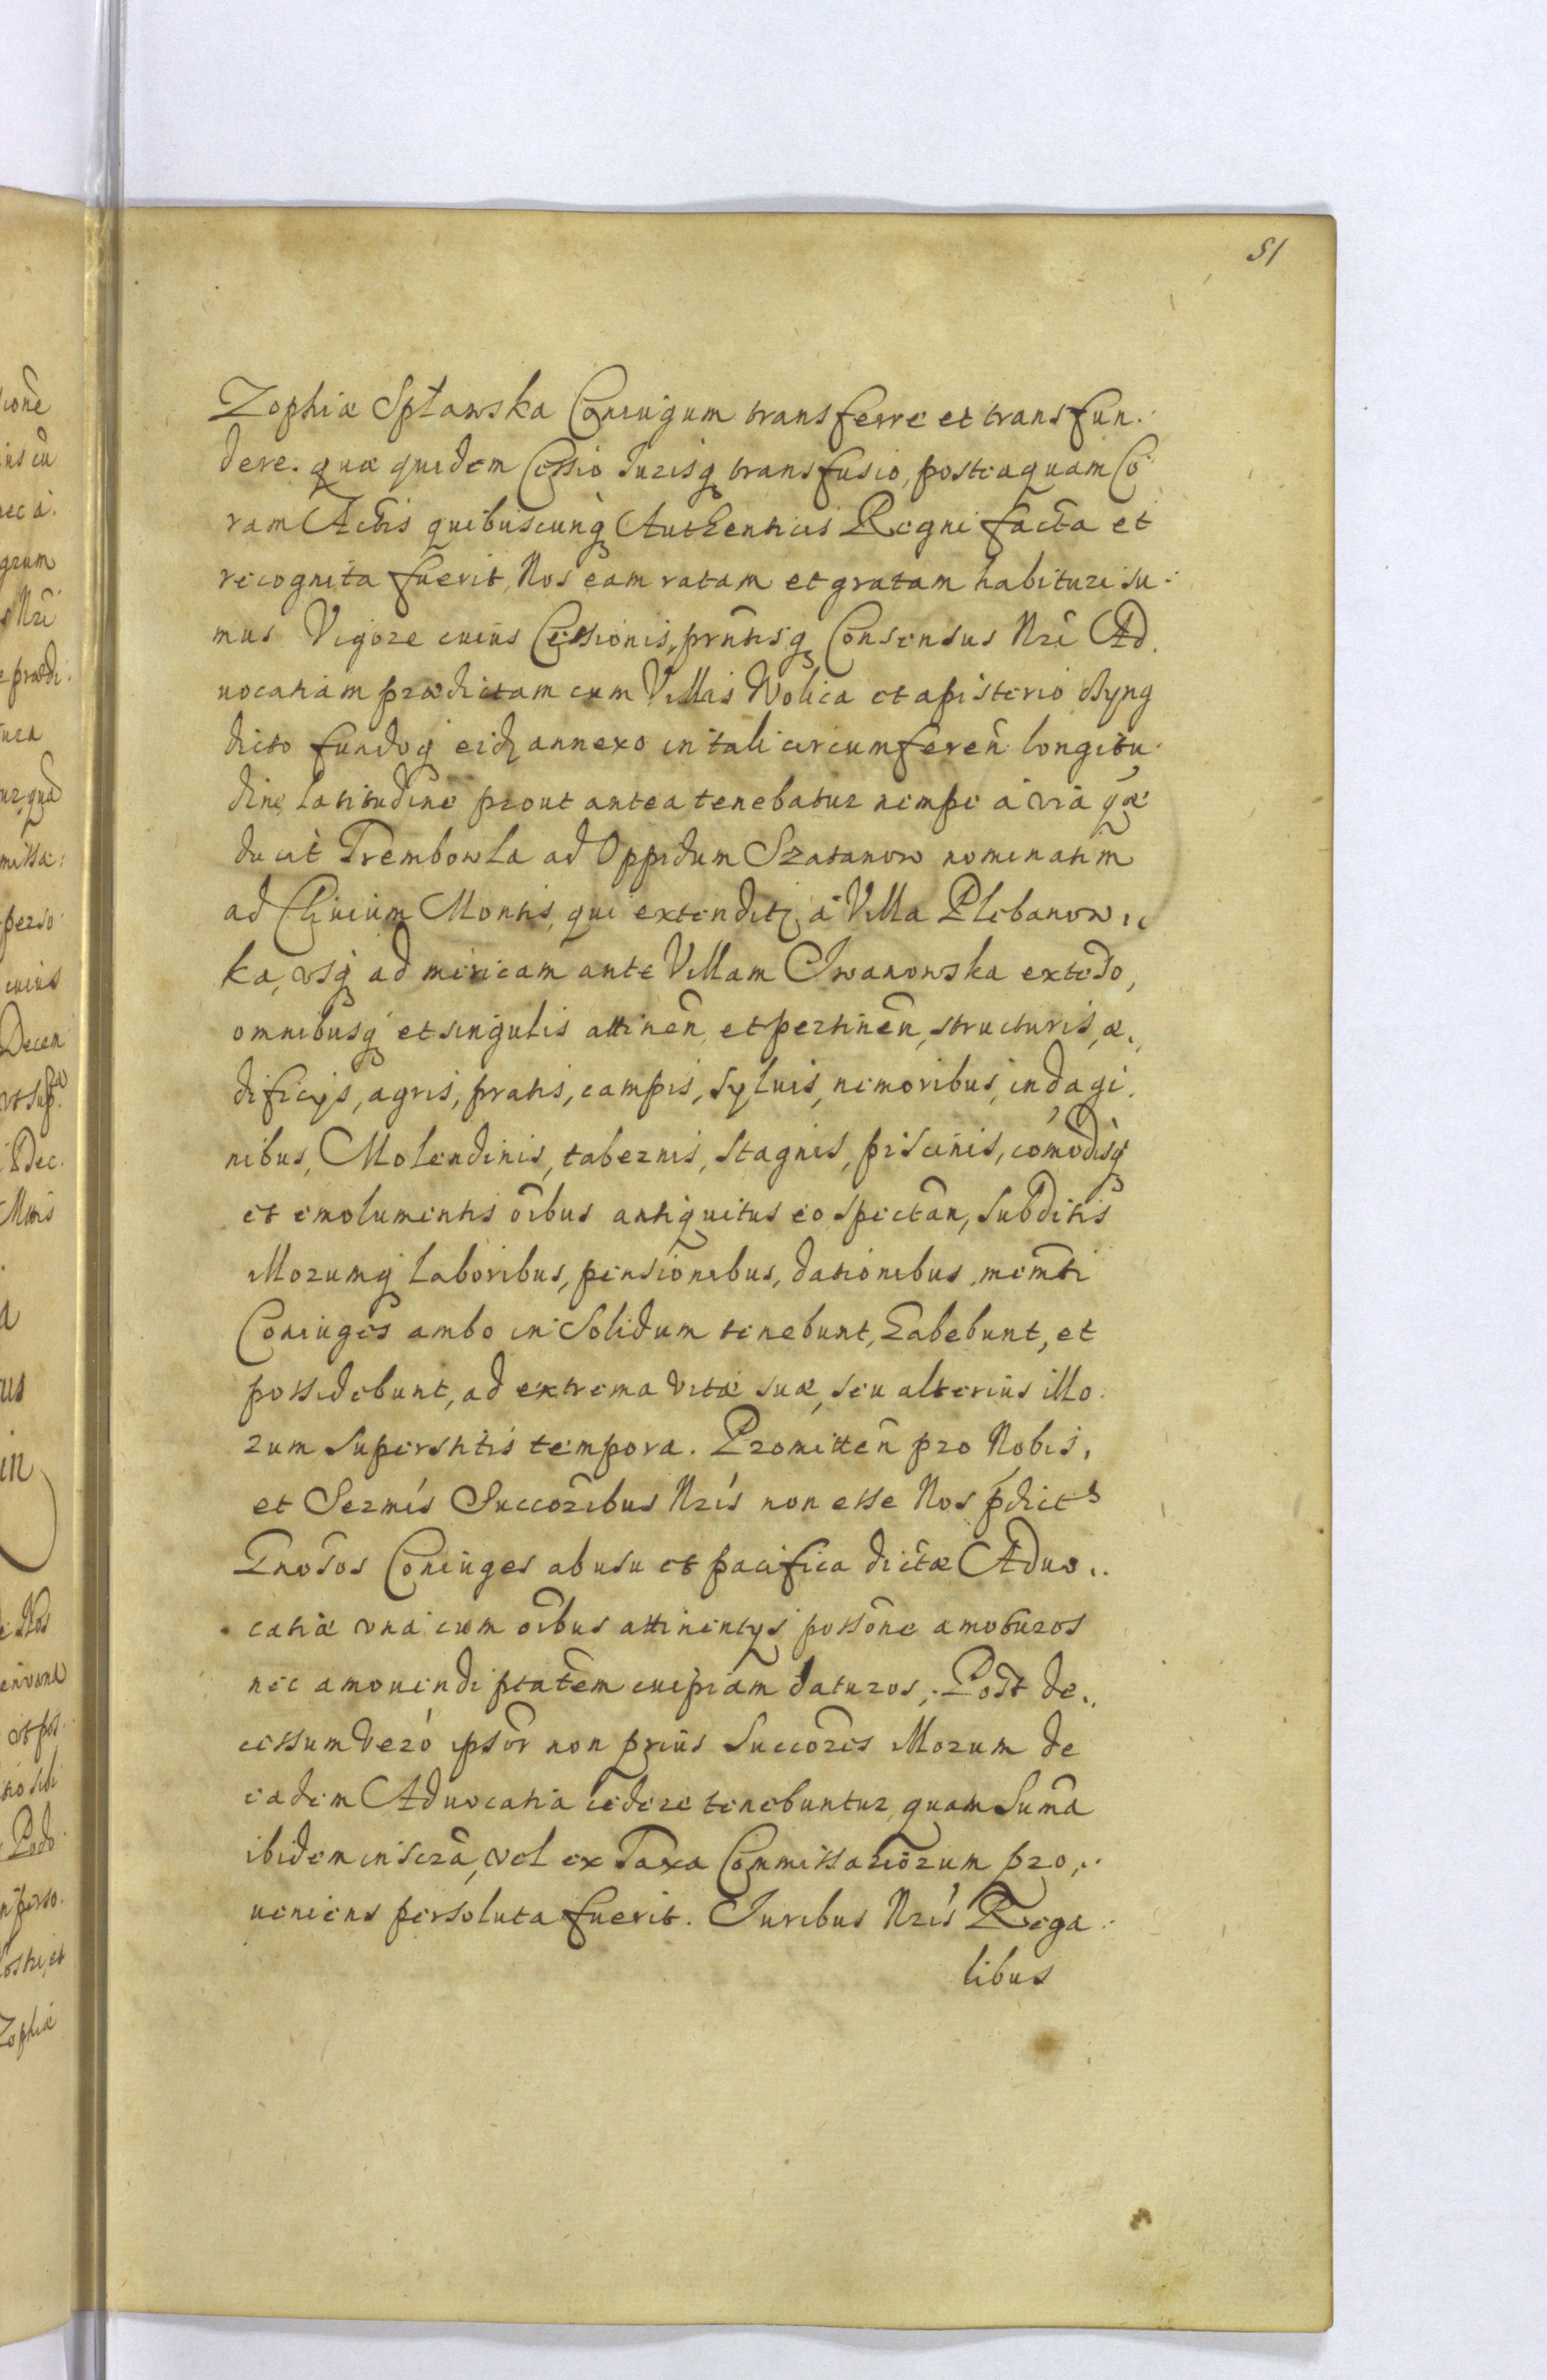 51
Zophiæ Spławska Coniugum transferre et transfun.
dere. quæ quidem Cessio Jurisq₃ transfusio, posteaquam Co
ram Actis quibuscunq₃ Authenticis Regni facta et
recognita fuerit, Nos eam ratam et gratam habituri su.
mus Vigore cuius Cessionis, prñtisq₃ Consensus Nr̃i Ad.
uocatiam prædictam cum Villis Wolica et apisterio
dicto fundoq₃ eidẽ annexo in tali circumferen̄ longitu.
dine, latitudine prout antea tenebatur nempe à via q̃æ
ducit Trembowla ad Oppidum Szatanow nominatim
ad Cliuium Montis, qui extenditr à Villa Plebanow,,
ka, vsq₃ ad mericam ante Villam Iwanowska extẽdo,
omnibusq₃ et singulis attinen̄, et pertinen̄, structuris, æ,,
dificijs, agris, pratis, campis, syluis, nemoribus, indagi.
nibus, Molendinis, tabernis, stagnis, piscinis, com̃odisq₃
et emolumentis oĩbus antiquitus eo spectan̄, subditis
illorumq₃ laboribus, pensionibus, dationibus, mem̃ti
Coniuges ambo in solidum tenebunt, habebunt, et
possidebunt, ad extrema vitæ suæ, seu alterius illo.
rum superstitis tempora. Promitten̄ pro Nobis,
et Sermĩs Succor̃ibus Nr̃is non esse Nos p̃dictos
Gnosos Coniuges ab usu et pacifica dictæ Aduo,,
catiæ vna cum oĩbus attinentijs possõne amoturos
nec amouendi ptatẽm cuipiam daturos, Post de,,
cessum verò ipsor̃ non prius Succor̃es illorum de
eadem Aduocatia cedere tenebuntur, quam Sum̃a
ibidem inscr̃a, vel ex Taxa Commissariorum pro,,
ueniens persoluta fuerit. Iuribus Nr̃is Rega.
libus